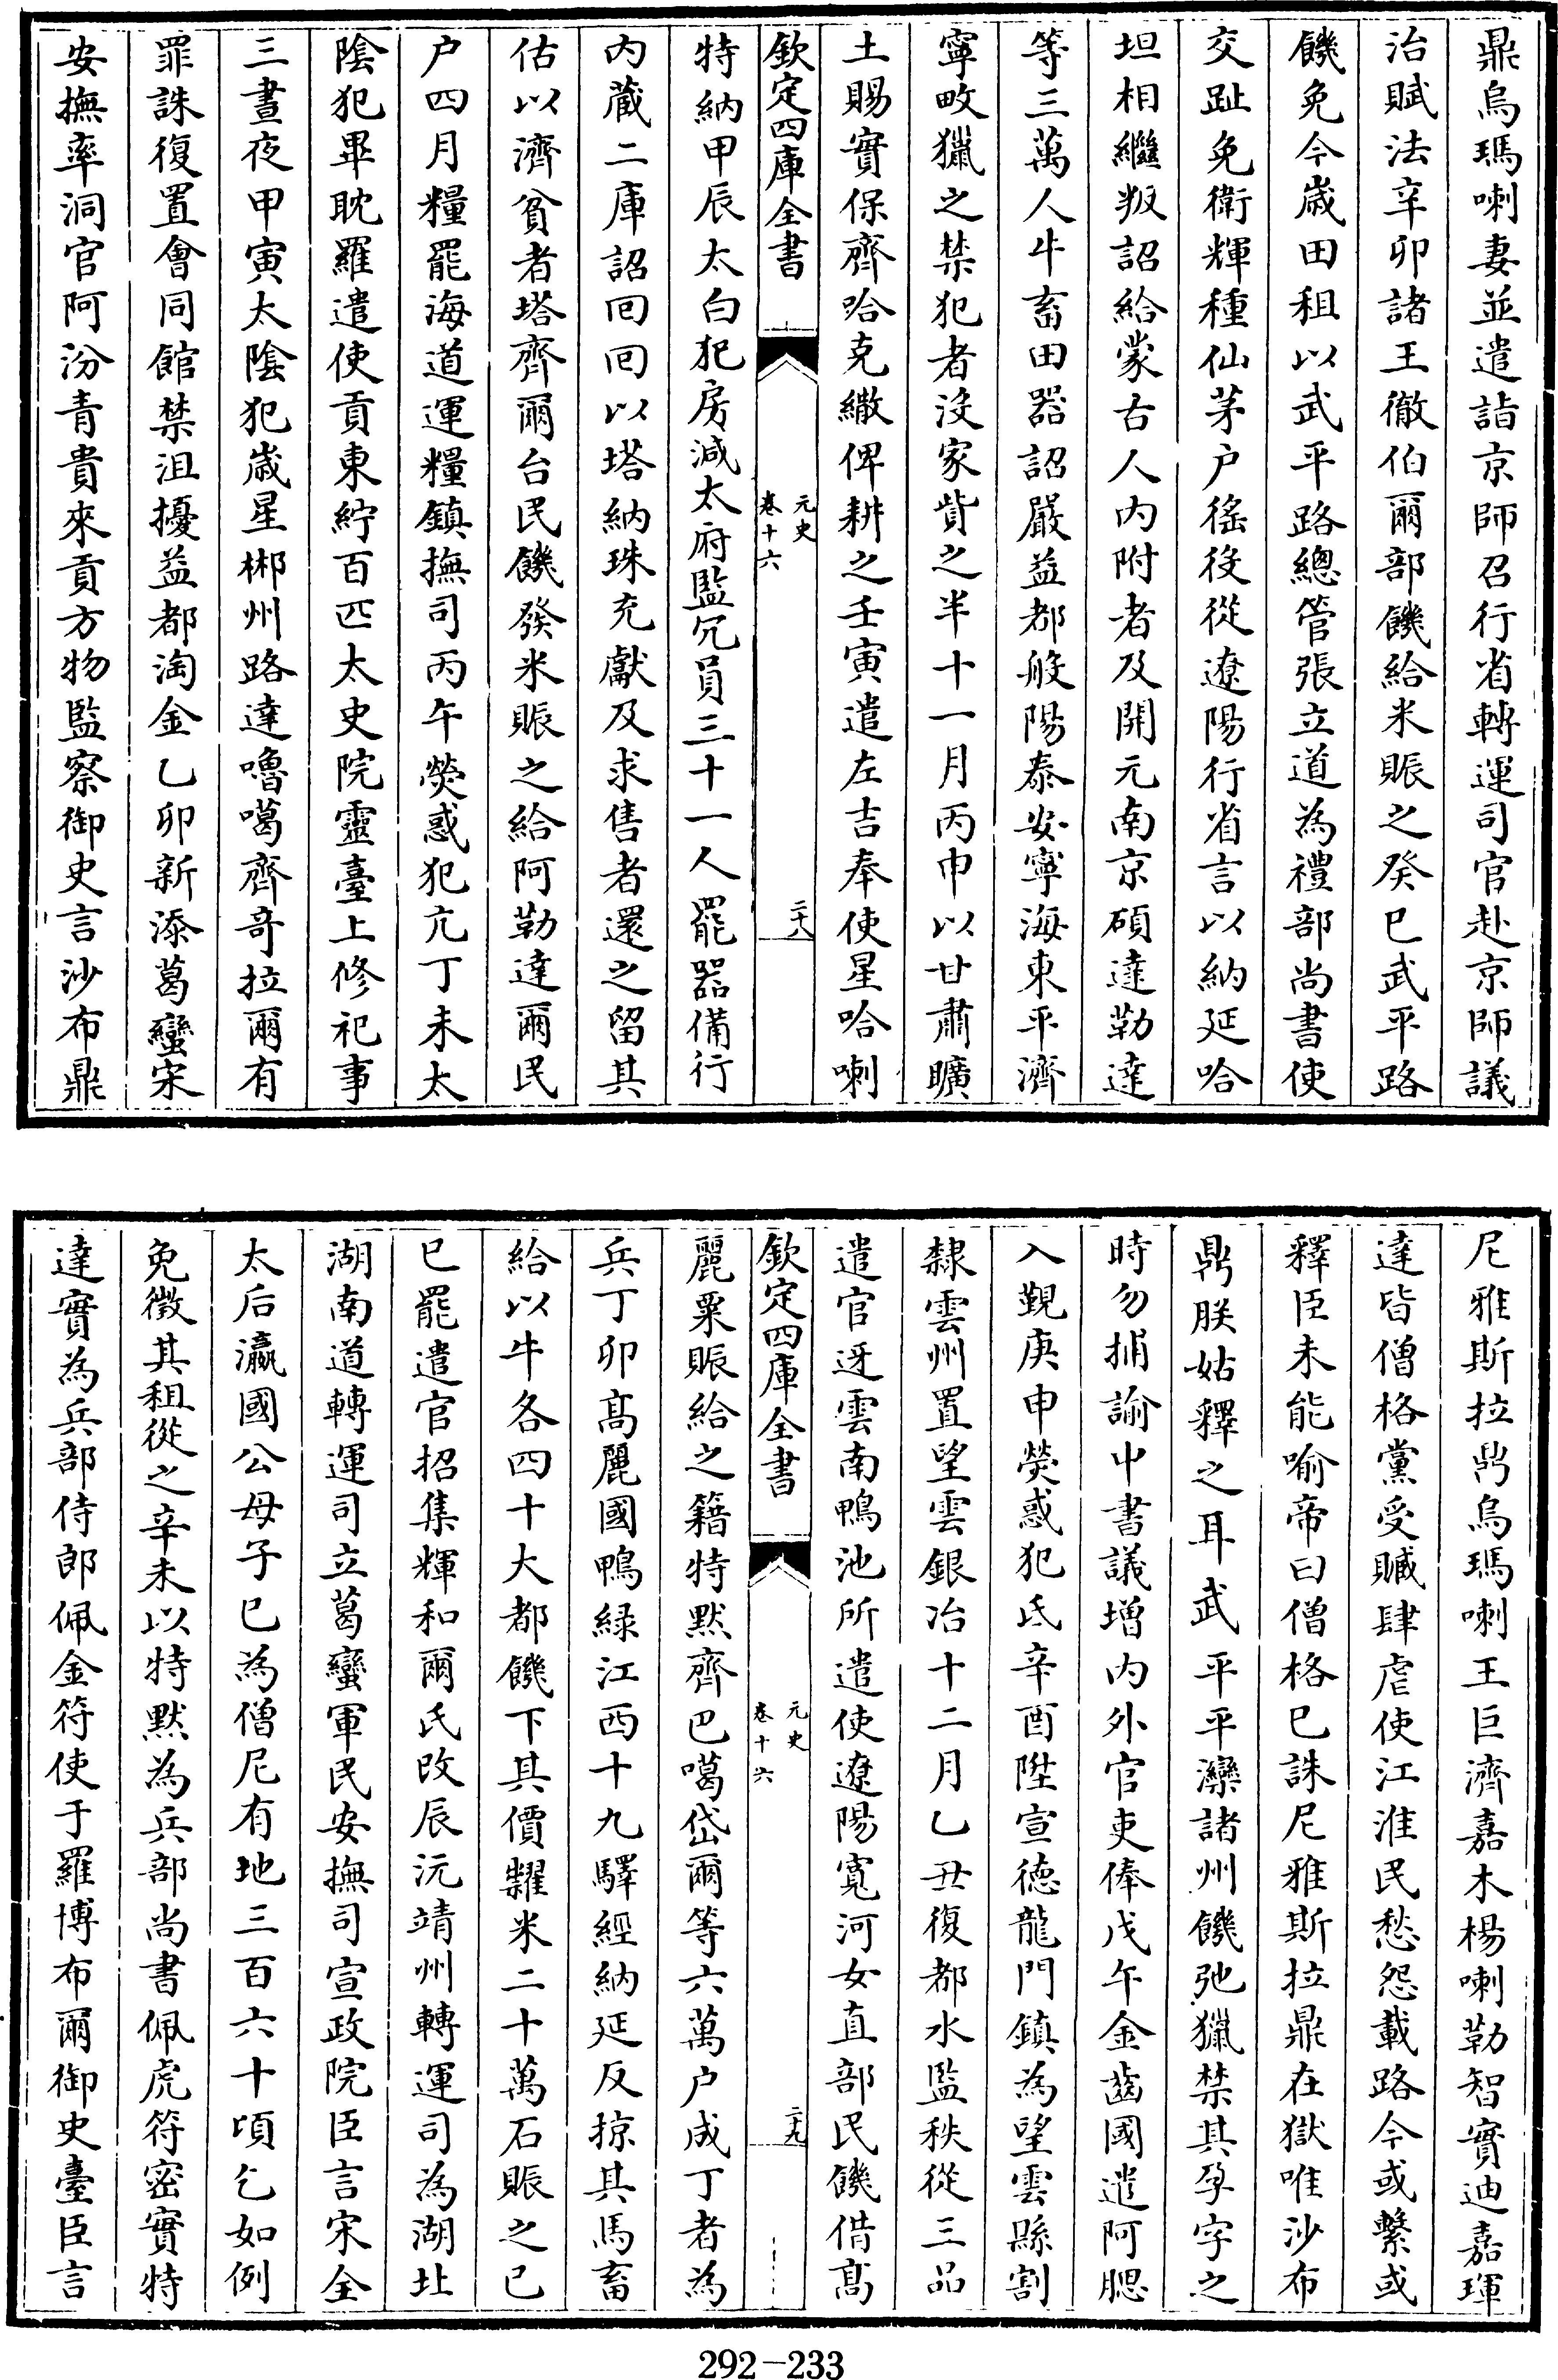 鼎烏瑪喇妻並遣詣京師召行省轉運司官赴京師議
治賦法辛卯諸王徹伯爾部饑給米賑之癸巳武平路
饑免今歲田租以武平路總管張立道為禮部尚書使
交趾免衛輝種仙茅户徭役從遼陽行省言以納延哈
坦相繼叛詔給蒙古人内附者及開元南京碩達勒達
等三萬人牛畜田器詔嚴益都般陽泰安寧海東平濟
寧畋獵之禁犯者没家貲之半十一月丙申以甘肅曠
土賜實保齊哈克繖俾耕之壬寅遣左吉奉使星哈喇
欽定四庫全書
元史
卷十六
二十八
特納甲辰太白犯房減太府監冗員三十一人罷器備行
内藏二庫詔回回以塔納珠充獻及求售者還之留其
估以濟貧者塔齊爾台民饑發米賑之給阿勒達爾民
户四月糧罷海道運糧鎮撫司丙午熒惑犯亢丁未太
陰犯畢耽羅遣使貢東紵百匹太史院靈臺上修祀事
三晝夜甲寅太陰犯歲星郴州路達嚕噶齊竒拉爾有
罪誅復置會同館禁沮擾益都淘金乙卯新添葛蠻宋
安撫率洞官阿汾青貴來貢方物監察御史言沙布鼎
尼雅斯拉鼎烏瑪喇王巨濟嘉木楊喇勒智實迪嘉琿
達皆僧格黨受贓肆虐使江淮民愁怨載路今或繫或
釋臣未能喻帝曰僧格已誅尼雅斯拉鼎在獄唯沙布
鼎朕姑釋之耳武平平灤諸州饑弛獵禁其孕字之
時勿捕諭中書議增内外官吏俸戊午金齒國遣阿腮
入覲庚申熒惑犯氐辛酉陞宣德龍門鎮為望雲縣割
隸雲州置望雲銀冶十二月乙丑復都水監秩從三品
遣官迓雲南鴨池所遣使遼陽寛河女直部民饑借髙
欽定四庫全書
元史
卷十六
二十九
麗粟賑給之籍特黙齊巴噶岱爾等六萬户成丁者為
兵丁卯髙麗國鴨緑江西十九驛經納延反掠其馬畜
給以牛各四十大都饑下其價糶米二十萬石賑之己
巳罷遣官招集輝和爾氏改辰沅靖州轉運司為湖北
湖南道轉運司立葛蠻軍民安撫司宣政院臣言宋全
太后瀛國公母子已為僧尼有地三百六十頃乞如例
免徵其租從之辛未以特黙為兵部尚書佩虎符密實特
達實為兵部侍郎佩金符使于羅博布爾御史臺臣言
292-233